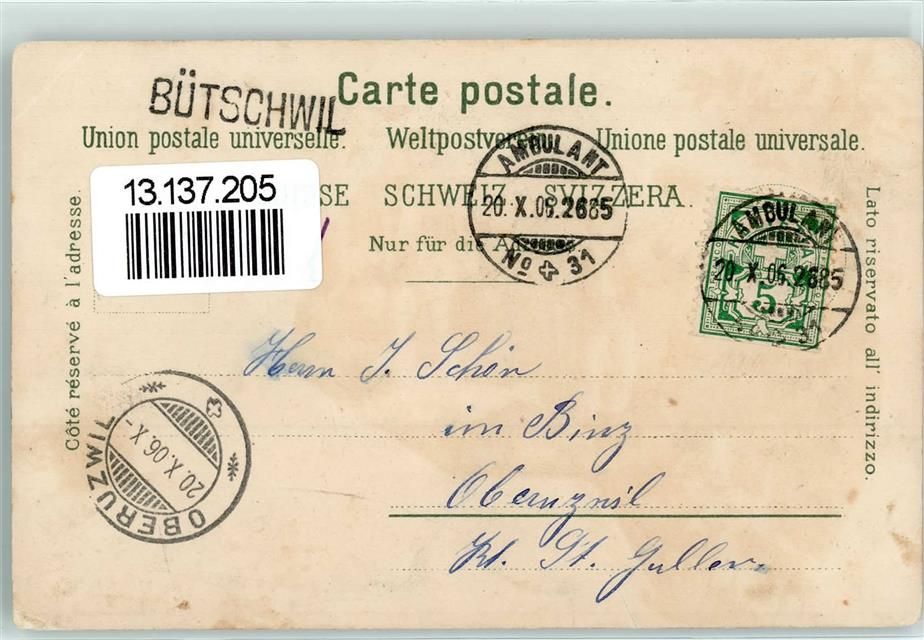 BÜTSCHWIL
Carte postale.
Union postale universelle. Weltpostverein Unione postale universale.
13.137.205
SCHWEIZ SVIZZERA.
Nur für die
AMBULANT
20. X. 06. 2685
No 31
AMBULANT
20. X. 06. 2685
5
Côté réservé à l'adresse.
Lato riservato all' indirizzo.
Herrn J. Schön
im Binz
Oberuzwil
Kt. St. Gallen.
OBERUZWIL
20. X. 06. X-